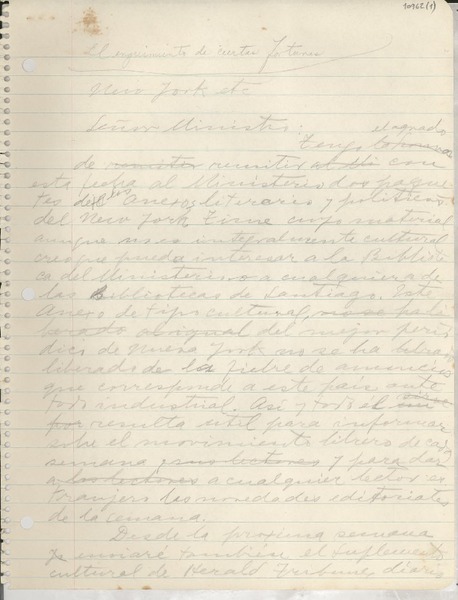 10962(1)
El de ciertos
New York etc
Señor Ministro:
el agrado
Tengo
de remitir remitir al Mi con
esta fecha al Ministerio dos paque
tes de Anexos literarios y políticos
del New York Time cuyo material
aunque no es integralmente cultural
creo que pueda interesar a la Bibliote
ca del Ministerio o a cualquiera de
las Bibliotecas de Santiago. Este
Anexo de tipo cultural, no se
del mejor perió
dico de Nueva York no se ha
liberado de la fiebre de anuncios
que corresponde a este país ante
todo industrial. Así y todo el
resulta útil para informar
sobre el movimiento librero de cada
semana sus lectores y para dar
a los lectores a cualquier lector ex
tranjero las novedades editoriales
de la semana.
Desde la próxima semana
enviaré también el Suplemento
cultural de Herald Tribune, diario